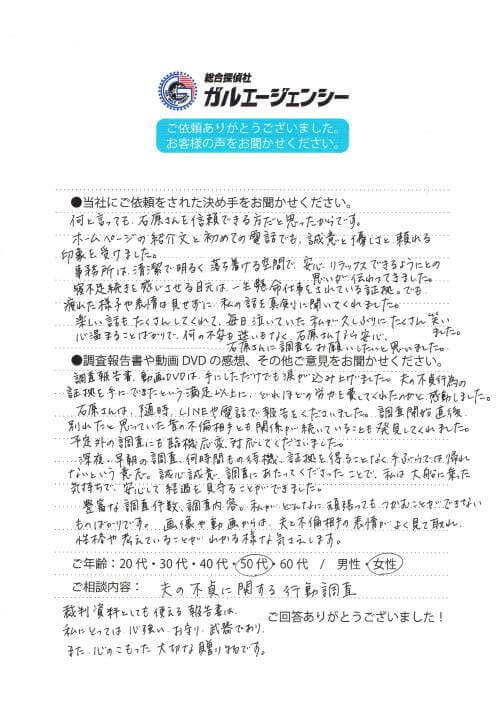 総合探偵社
ガルエージェンシー
ご依頼ありがとうございました。
お客様の声をお聞かせください。
●当社にご依頼をされた決め手をお聞かせください。
何と言っても、石原さんを信頼できる方だと思ったからです。
ホームページの紹介文と初めての電話でも、誠意と優しさと頼れる
印象を受けました。
事務所は、清潔で明るく落ち着ける空間で、安心、リラックスできるようにとの
思いが伝わってきました。
寝不足続きを感じさせる目元は、一生懸命仕事をされている証拠。でも、
疲れた様子や表情は見せずに私の話を真剣に聞いてくれました。
楽しい話もたくさんしてくれて、毎日泣いていた私が久しぶりにたくさん笑い
ました。
心温まることばかりで、何の不安も迷いもなく、石原さんなら安心、
石原さんに調査をお願いしたいと思いました。
●調査報告書や動画DVDの感想、その他ご意見をお聞かせください。
調査報告書、動画DVDは、手にしただけでも涙が込み上げました。夫の不貞行為の
証拠を手にできたという満足以上に、どれほどの労力を費してくれたのかと感動しました。
石原さんは、随時、LINEや電話で報告をくださいました。調査開始直後、
別れたと思っていた昔の不倫相手とも関係が続いていることも発見してくれました。
予定外の調査にも臨機応変、対応してくださいました。
深夜、早朝の調査、何時間もの待機、証拠を得ることなく手ぶらでは帰れ
ないという意志。誠心誠意、調査にあたってくださったことで、私は大船に乗った
気持ちで、安心して経過を見守ることができました。
豊富な調査件数、調査内容。私がどんなに頑張ってもつかむことができない
ものばかりです。画像や動画からは、夫と不倫相手の表情がよく見て取れ、
性格や考えていることがわかる様な気さえします。
ご年齢：20代・30代・40代・50代・60代 / 男性・女性
ご相談内容： 夫の不貞に関する行動調査
裁判資料としても使える報告書は、
私にとっては、心強い、お守り、武器であり、
また、心のこもった大切な贈り物です。
ご回答ありがとうございました！